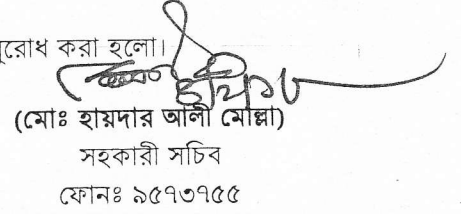 রোধ করা হলো।
(মোঃ হায়দার আলী মোল্লা)
সহকারী সচিব
ফোনঃ ৯৫৭৩৭৫৫